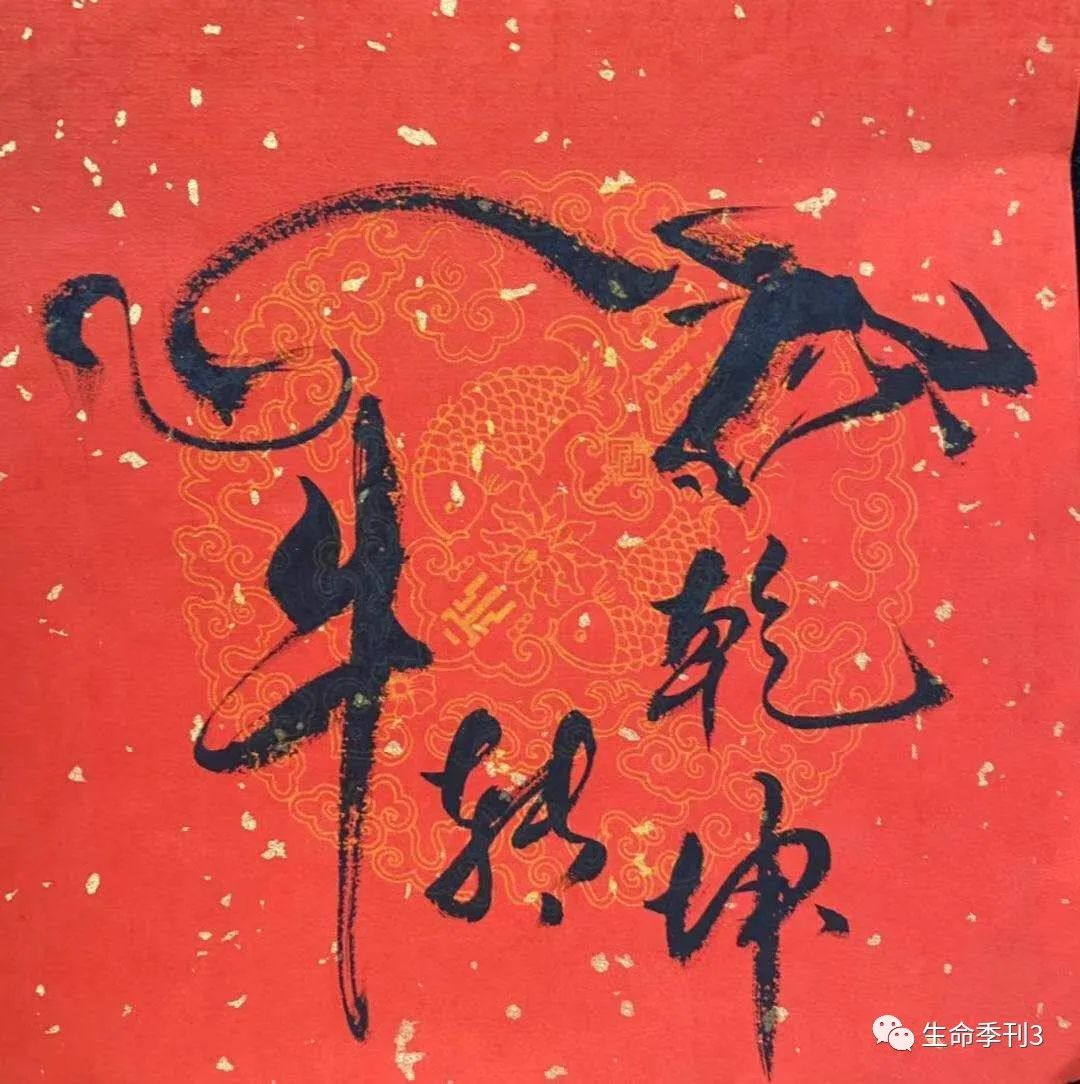 牛转乾坤
生命季刊3